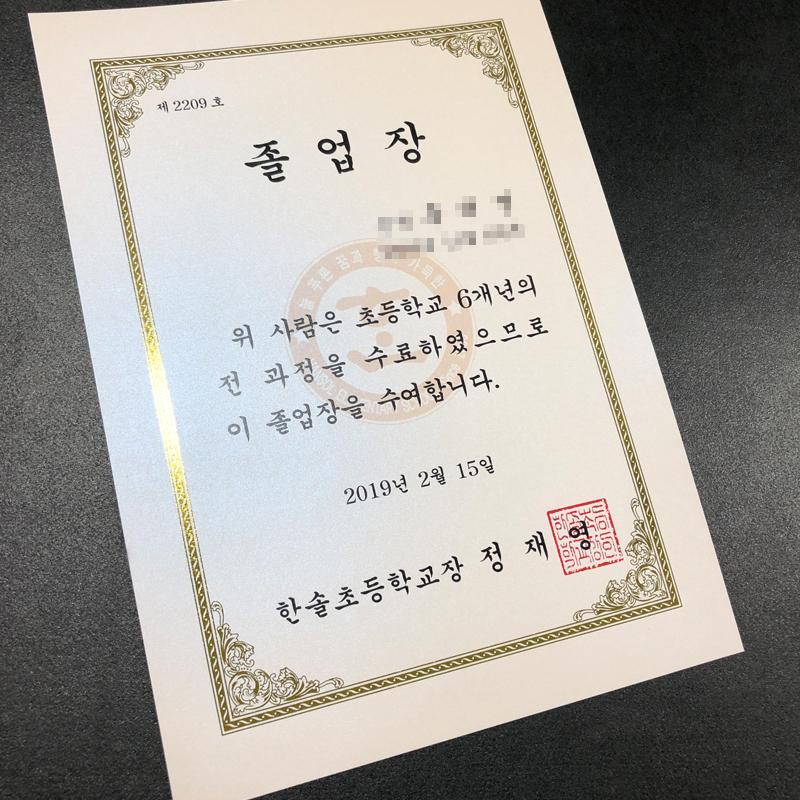 제 2209 호
졸 업 장
위 사람은 초등학교 6개년의
전 과정을 수료하였으므로
이 졸업장을 수여합니다.
2019년 2월 15일
한솔초등학교장 정 재 영